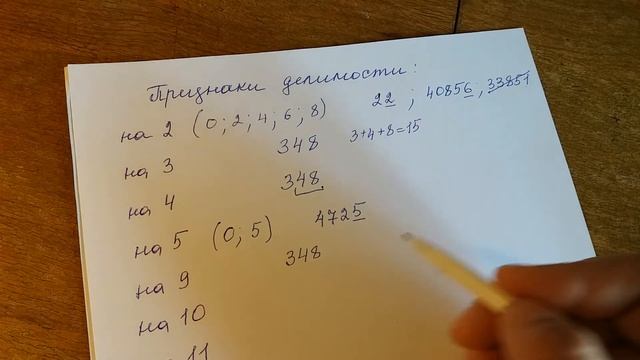 Признаки делимости:
на 2 (0; 2; 4; 6; 8) 22; 40856; 33851
на 3 348 3+4+8=15
на 4 348
на 5 (0; 5) 4725
на 9 348
на 10
11